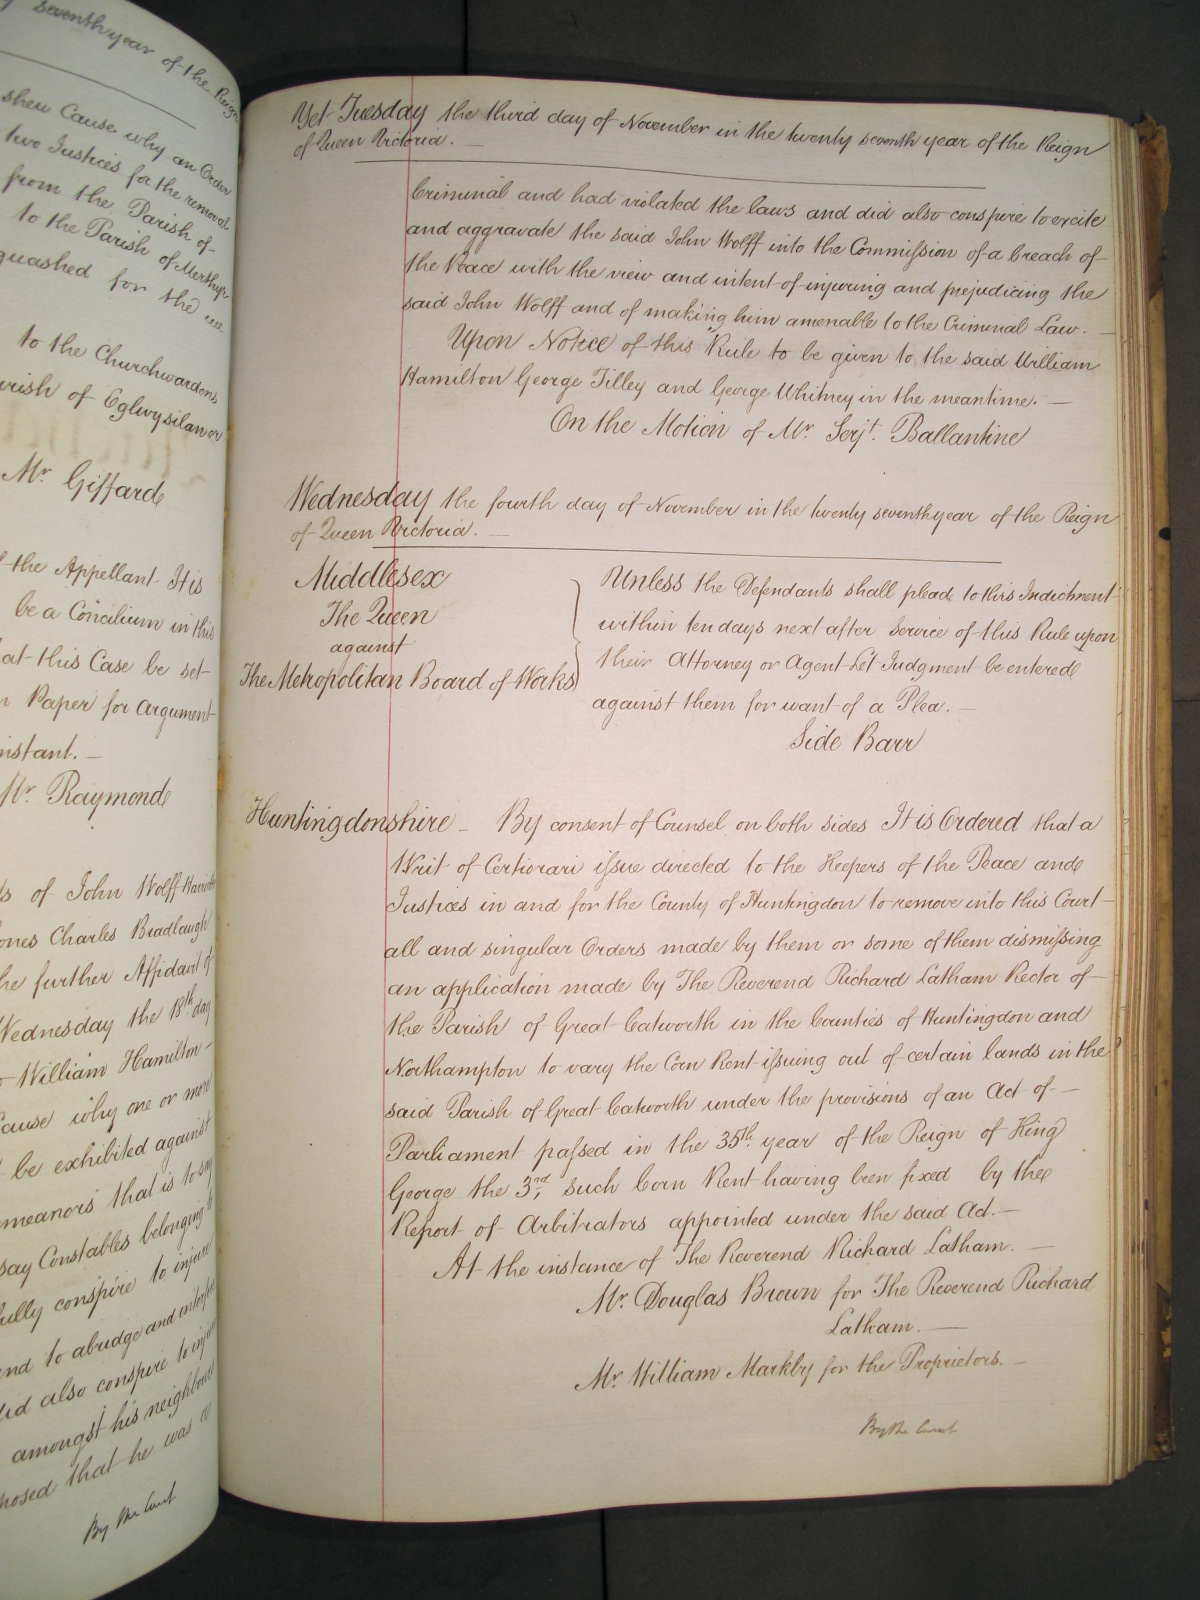 seventh year of the Reign
shew Cause why an Order
two Justices for the removal
from the Parish of
to the Parish of Merthyr
quashed for the
to the Churchwardens
of Eglwysilan or
Mr Giffard
the Appellant It is
be a Concilium in this
at this Case be set
Paper for Argument
instant.
Mr Raymond
of John Wolff Harriet
Jones Charles Bradlaugh
the further Affidavit of
Wednesday the 18th day
William Hamilton
Cause why one or more
be exhibited against
that is to say
say Constables belonging to
conspire to injure
and to abridge and interfere
did also conspire to injure
amongst his neighbours
that he was a
By the Court
Yet Tuesday the third day of November in the twenty seventh year of the Reign
of Queen Victoria.
Criminal and had violated the laws and did also conspire to excite
and aggravate the said John Wolff into the Commission of a breach of
the Peace with the view and intent of injuring and prejudicing the
said John Wolff and of making him amenable to the Criminal Law.
Upon Notice of this Rule to be given to the said William
Hamilton George Tilley and George Whitney in the meantime.
On the Motion of Mr. Serjt. Ballantine
Wednesday the fourth day of November in the twenty seventh year of the Reign
of Queen Victoria.
Middlesex
The Queen
against
The Metropolitan Board of Works
Unless the Defendants shall plead to this Indictment
within ten days next after Service of this Rule upon
their Attorney or Agent Let Judgment be entered
against them for want of a Plea.
Side Barr
Huntingdonshire – By consent of Counsel on both sides It is Ordered that a
Writ of Certiorari issue directed to the Keepers of the Peace and
Justices in and for the County of Huntingdon to remove into this Court
all and singular Orders made by them or some of them dismissing
an application made by The Reverend Richard Latham Rector of
the Parish of Great Catworth in the Counties of Huntingdon and
Northampton to vary the Corn Rent issuing out of certain lands in the
said Parish of Great Catworth under the provisions of an Act of
Parliament passed in the 35th year of the Reign of King
George the 3rd, such Corn Rent having been fixed by the
Report of Arbitrators appointed under the said Act.
At the instance of The Reverend Richard Latham.
Mr. Douglas Brown for The Reverend Richard
Latham.
Mr. William Markby for the Proprietors.
By the Court